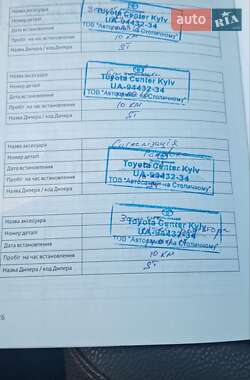 AUTO RIA
Номер деталі
Toyota Center Kyiv
UA-94432-34
Дата встановлення
ТОВ "Автосаміт на Столичному"
Пробіг на час встановлення
10 КМ
Назва Дилера / код Дилера
ST
Назва аксесуара
Номер деталі
Toyota Center Kyiv
UA-94432-34
Дата встановлення
ТОВ "Автосаміт на Столичному"
Пробіг на час встановлення
10 КМ
Назва Дилера / код Дилера
ST
Назва аксесуара
Сигналізація
Номер деталі
Toyota Center Kyiv
Дата встановлення
UA-94432-34
Пробіг на час встановлення
ТОВ "Автосаміт на Столичному"
Назва Дилера / код Дилера
Назва аксесуара
Номер деталі
Toyota Center Kyiv
UA-94432-34
Дата встановлення
ТОВ "Автосаміт на Столичному"
Пробіг на час встановлення
10 КМ
Назва Дилера / код Дилера
ST